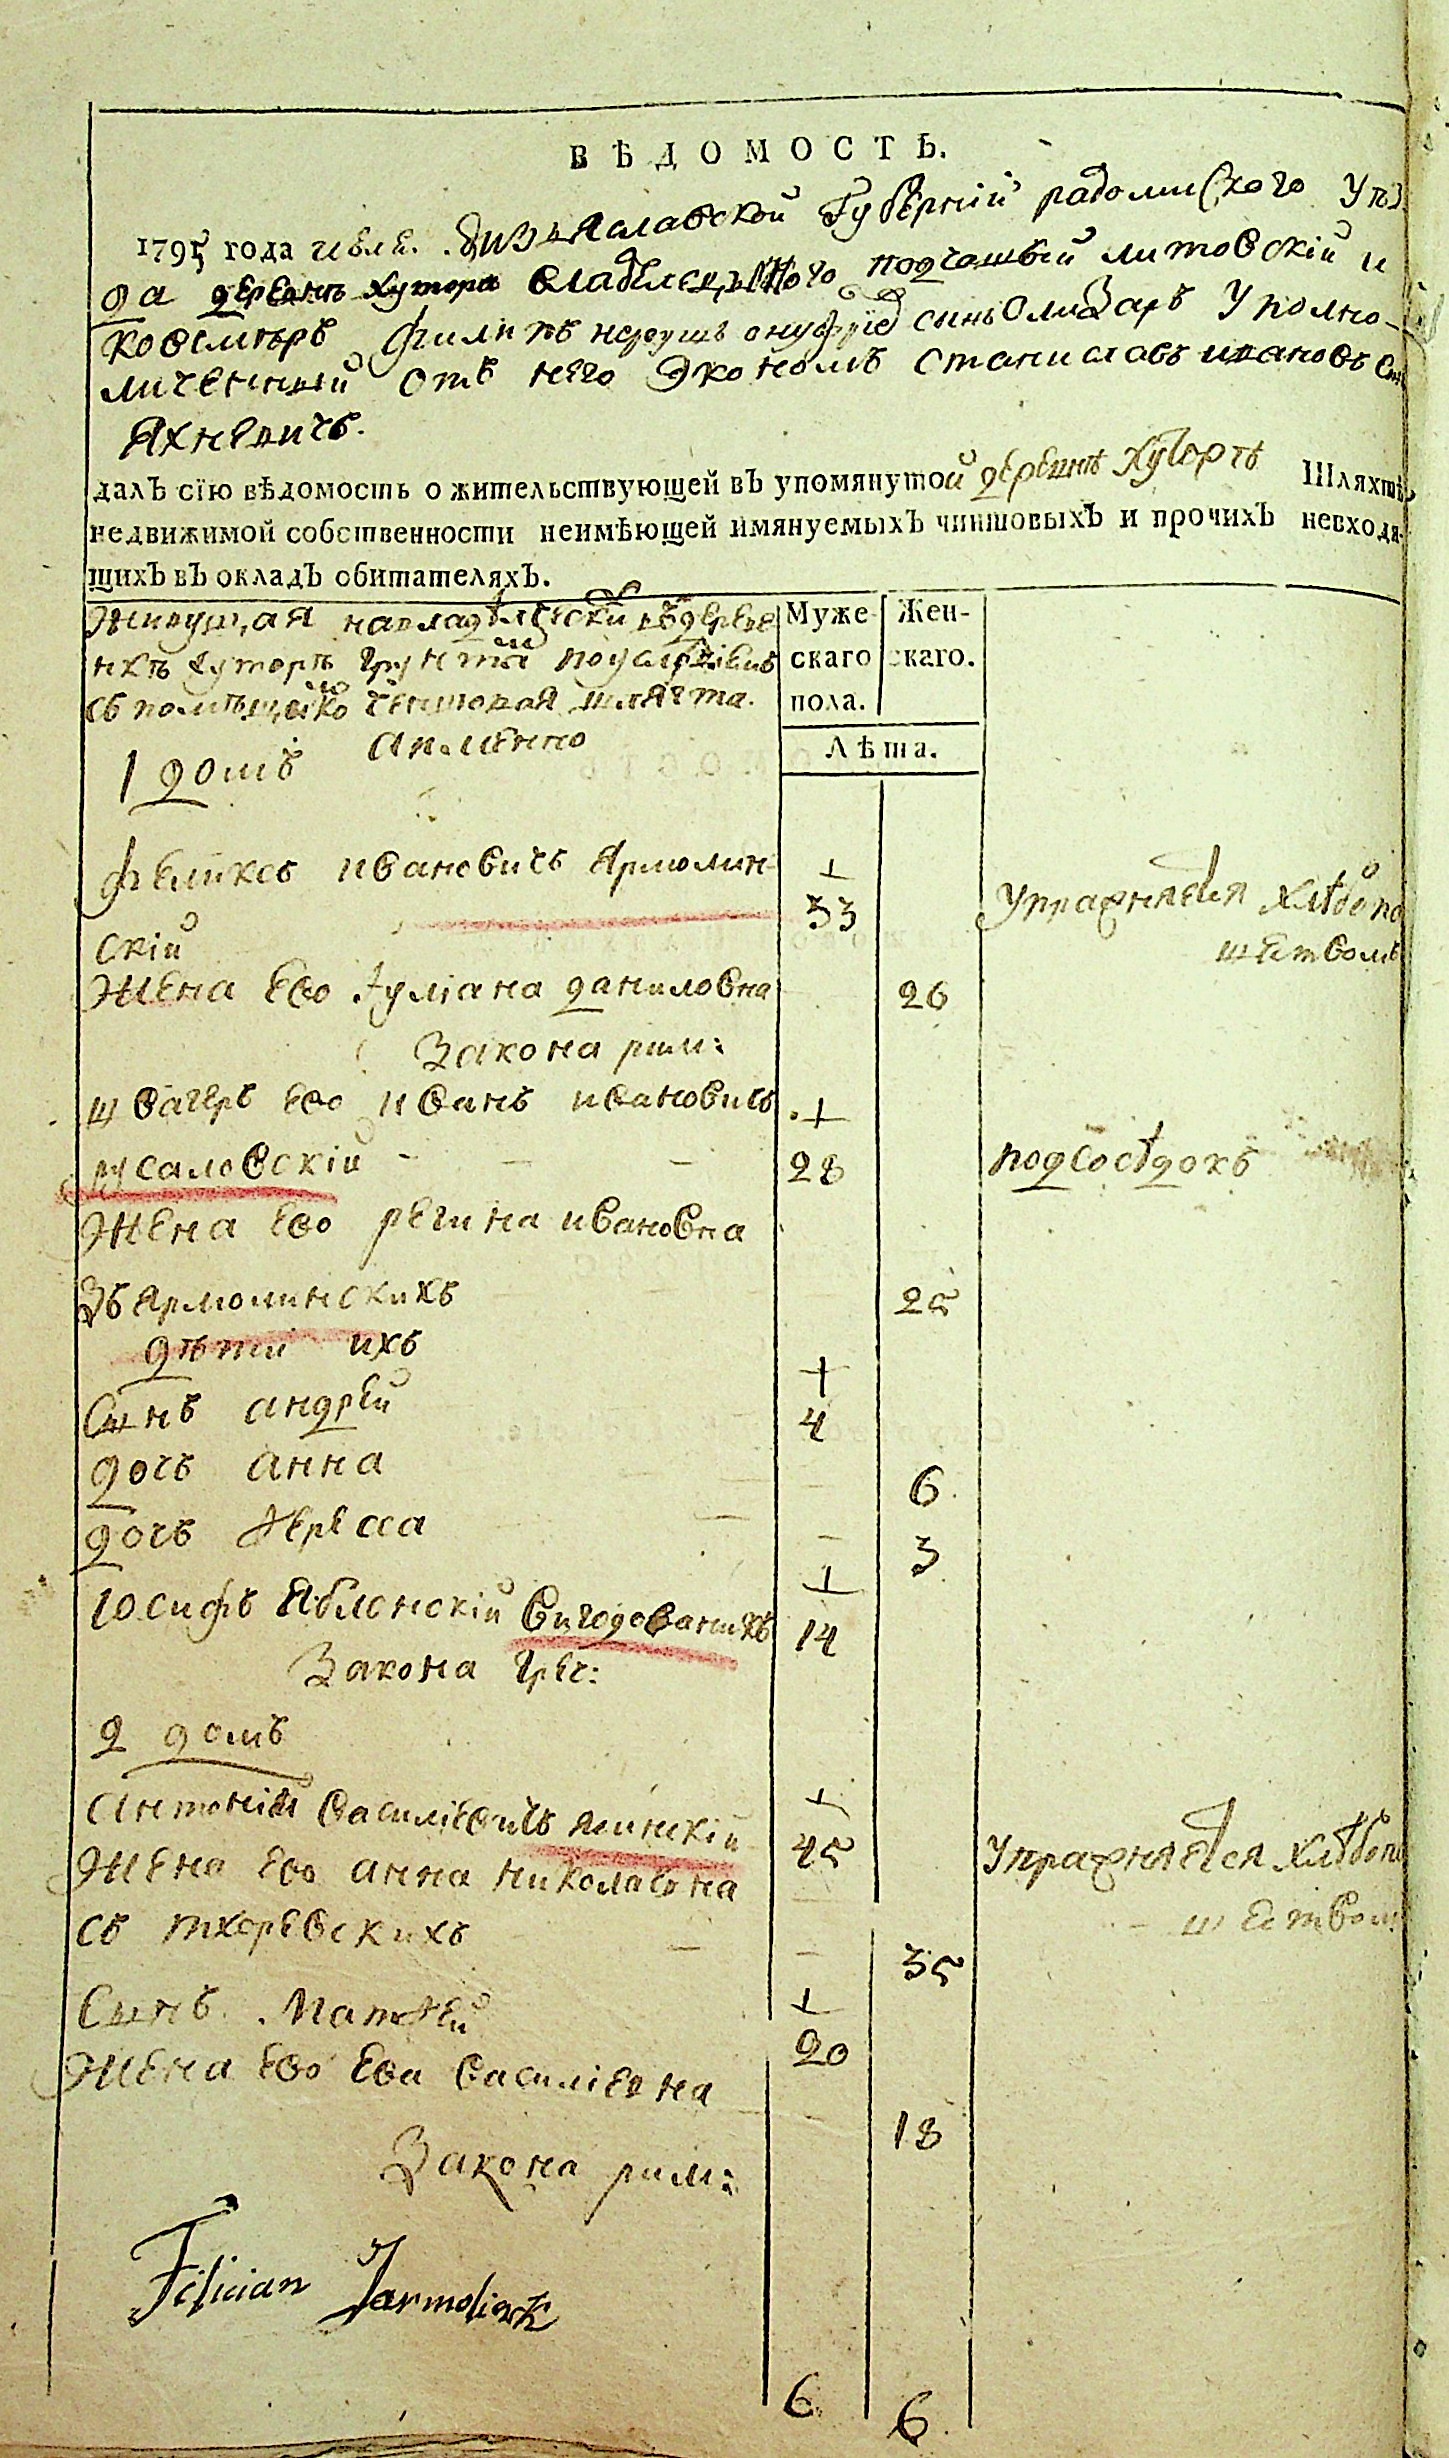 ВѢДОМОСТЬ.
1795 года июля. Изъяславской Губерніи радомисского Уѣз
да деревнѣ Хутора Владѣлецъ подчашый литовскій и
ковалѣръ Филипъ онуфрієв сынъ Олизаръ Уполно-
мичений отъ него Экономъ Станиславъ ивановъ
Яхневичъ.
далъ сїю вѣдомость о жительствующей въ упомянутой деревнѣ Хуторѣ Шляхтѣ,
недвижимой собственности неимѣющей имянуемыхъ чиншовыхъ и прочихъ невходя-
щихъ въ окладъ обитателяхъ.
Живущая навладѣлческой въ дереве
нкѣ хуторѣ грунтѣ
съ помѣщико чиншовая шляхта.
Аимѣнно
Муже-
скаго
пола.
Жен-
скаго.
Лѣта.
1 домъ
Феликсъ ивановичъ Ярмолин-
скій
33
Упражняєтся хлѣбопа
шествомъ
Жена Ево Іуліана даниловна
26
Закона рим:
швагеръ Ево иванъ ивановичъ
русаловскій - - -
28
подсосѣдокъ
Жена Ево регина ивановна
Зъ Ярмолинскихъ
25
дѣти ихъ
Сынъ андрей
4
дочъ анна
6.
дочъ тереса
3
Юсифъ Яблонскій вигодованихъ
14
Закона Греч:
2 домъ
Антоній Василієвичъ ясинскій
45
Упражняєтся хлѣбопа
шествомъ
Жена Ево анна николаєвна
съ тхоревскихъ
35
Сынъ. Матѳей
20
Жена Ево Ева василієвна
18
Закона рим:
Felician Jarmolinsk
6.
6.